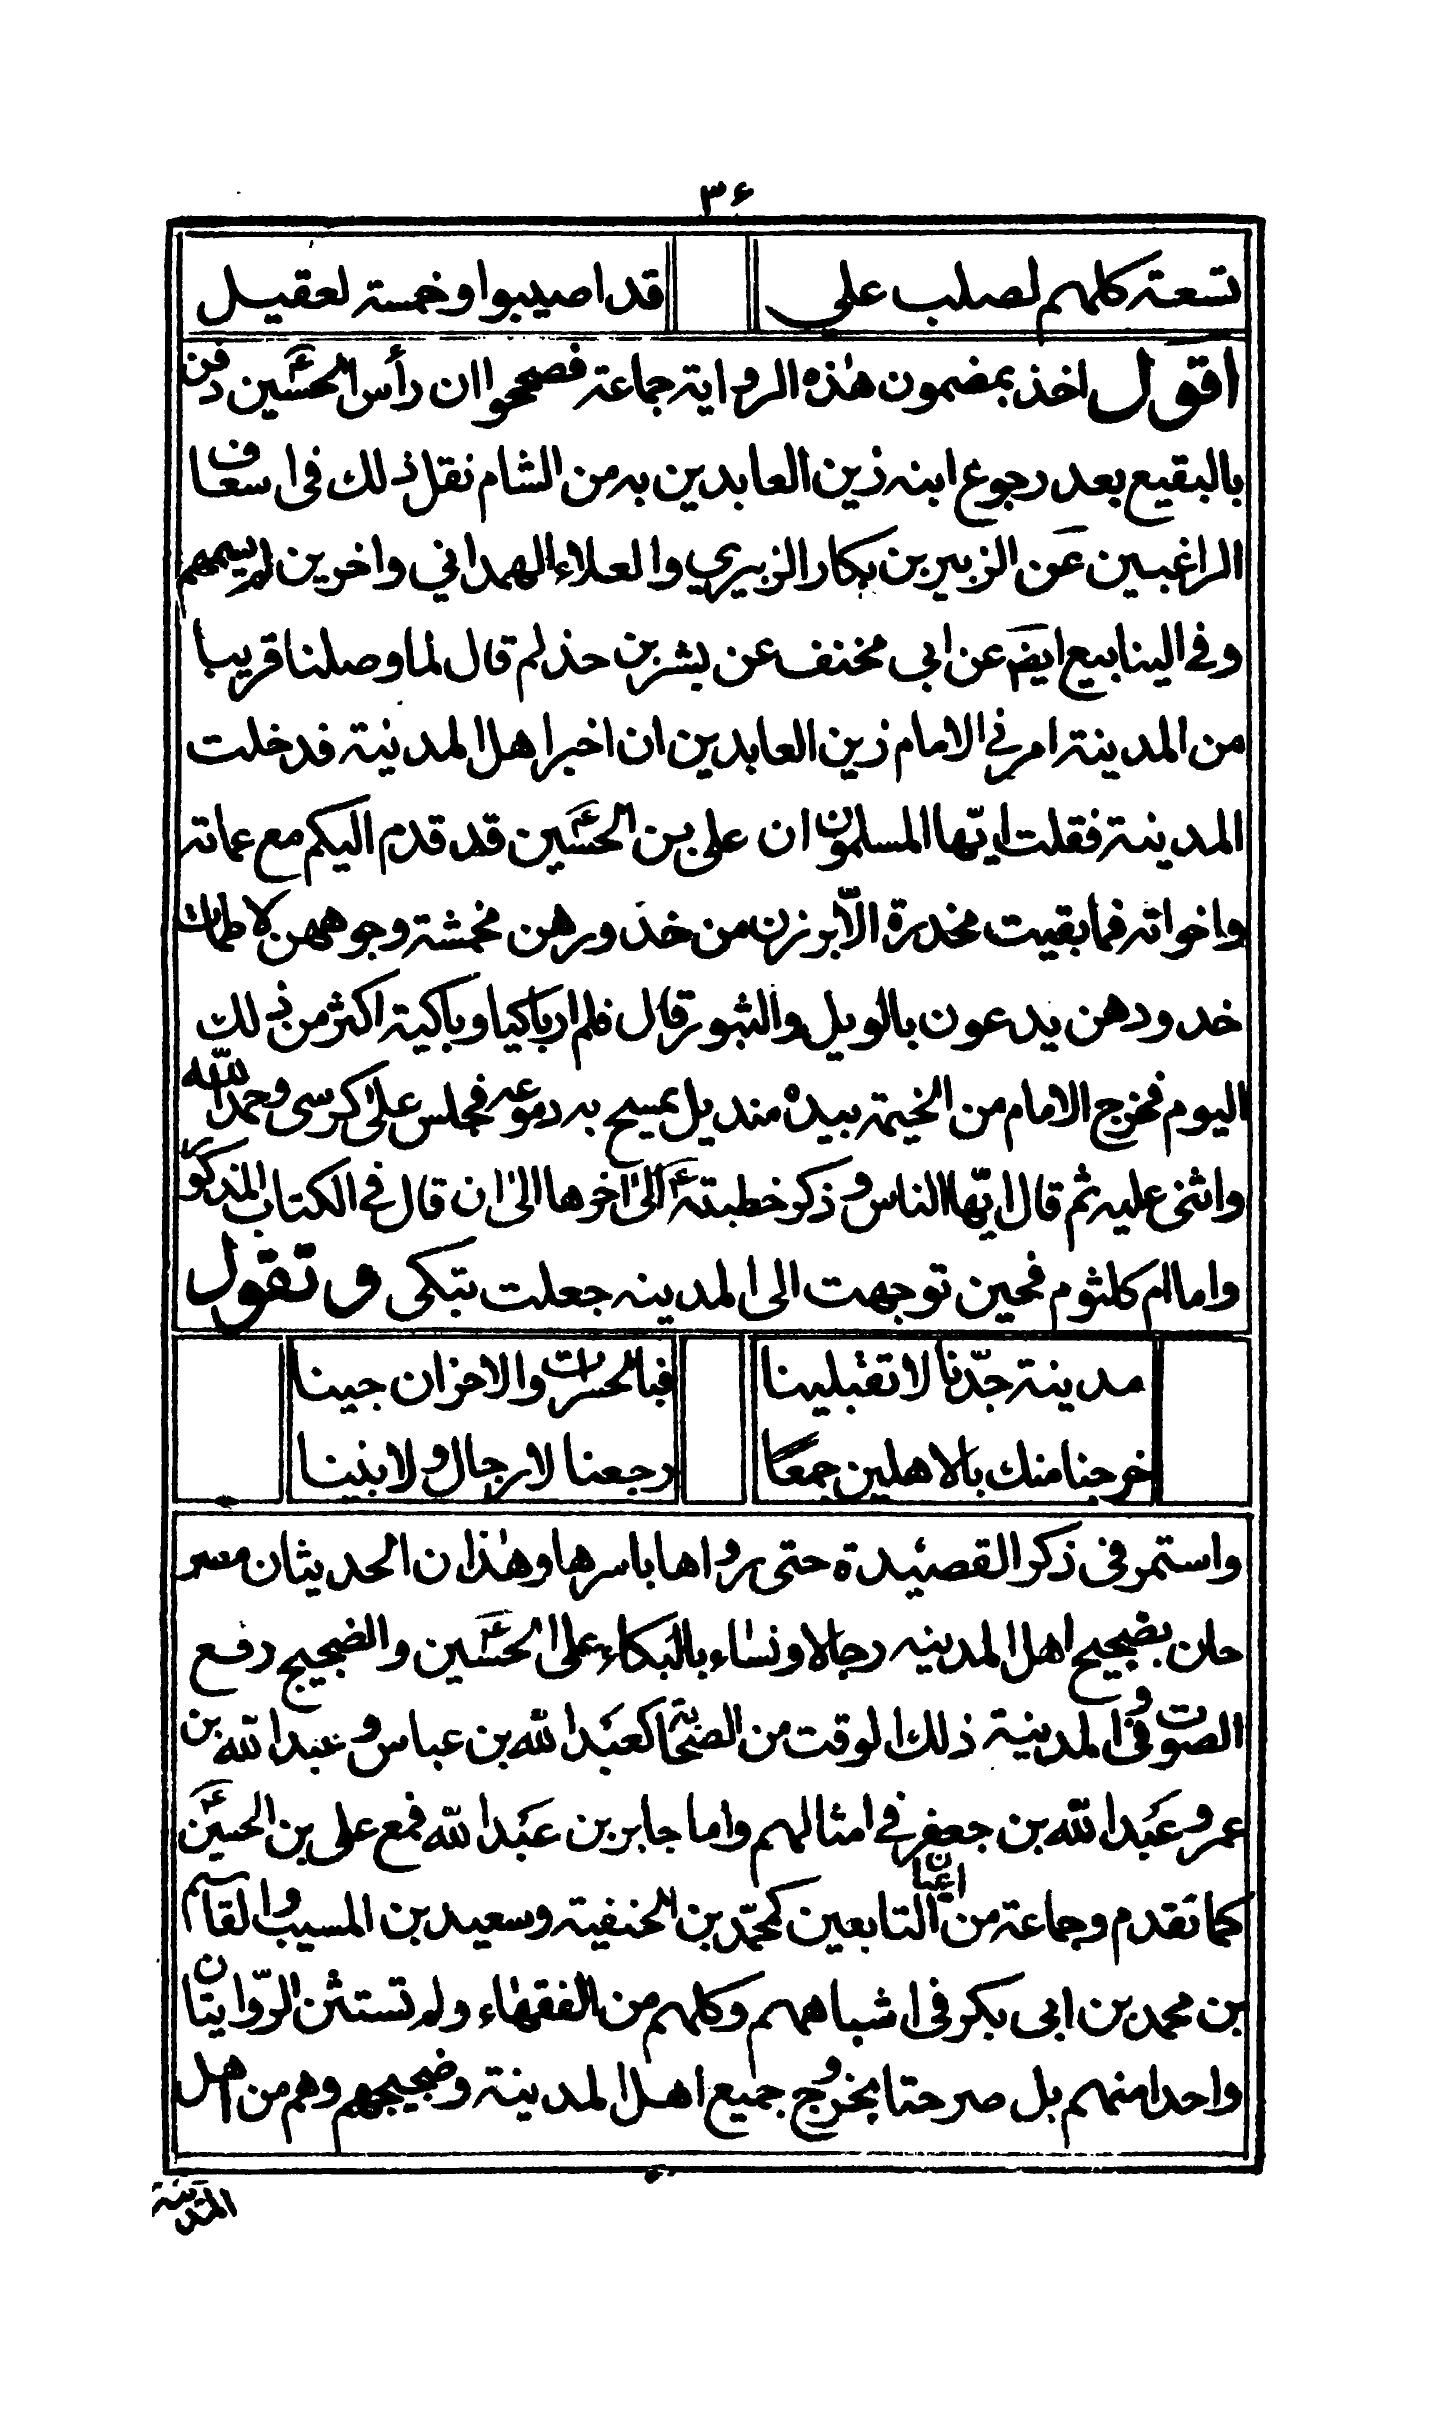 ٣۶
تسعة كلهم لصلب علي قد اصيبوا وخمسة لعقيل
اقول اخذ بمضمون هذه الرواية جماعة فصححوا ان رأس الحسين ع دفن
بالبقيع بعد رجوع ابنه زين العابدين به من الشام نقل ذلك في اسعاف
الراغبين عن الزبير بن بكار الزبيري والعلاء الهمداني واخرين لم يسمهم
وفي الينابيع ايضا عن ابي مخنف عن بشر بن حذلم قال لما وصلنا قريبا
من المدينة امرني الامام زين العابدين ان اخبر اهل المدينة فدخلت
المدينة فقلت ايّها المسلمون ان علي بن الحسين ع قد قدم اليكم مع عماته
واخواته فما بقيت مخدرة الّا برزن من خدورهن مخمشة وجوههن لاطمات
خدودهن يدعون بالويل والثبور قال فلم ار باكيا وباكية اكثر من ذلك
اليوم فخرج الامام من الخيمة بيده منديل يمسح به دموعه فجلس على كرسى وحمد الله
واثنى عليه ثم قال ايّها الناس وذكر خطبته ع الى اخرها الى ان قال في الكتاب المذكور
واما ام كلثوم فحين توجهت الى المدينه جعلت تبكى وتقول
مدينة جدّنا لا تقبلينا فبالحسرات والاحزان جينا
خرجنا منك بالاهلين جمعًا رجعنا لا رجال ولا بنينا
واستمر في ذكر القصيدة حتى رواها باسرها وهذان الحديثان مصر
حان بضجيج اهل المدينه رجالا ونساء بالبكاء على الحسين ع والضجيج رفع
الصوت وفي المدينة ذلك الوقت من الصحابة كعبد الله بن عباس وعبد الله بن
عمر وعبد الله بن جعفر في امثالهم واما جابر بن عبد الله فمع علي بن الحسين ع
كما تقدم وجماعة من اعيان التابعين كمحمّد بن الحنفية وسعيد بن المسيب والقاسم
بن محمد بن ابى بكر في اشباههم وكلهم من الفقهاء ولم تستثن الرّوايتان
واحدا منهم بل صرحتا بخروج جميع اهل المدينة وضجيجهم وهم من اهل
المدينة